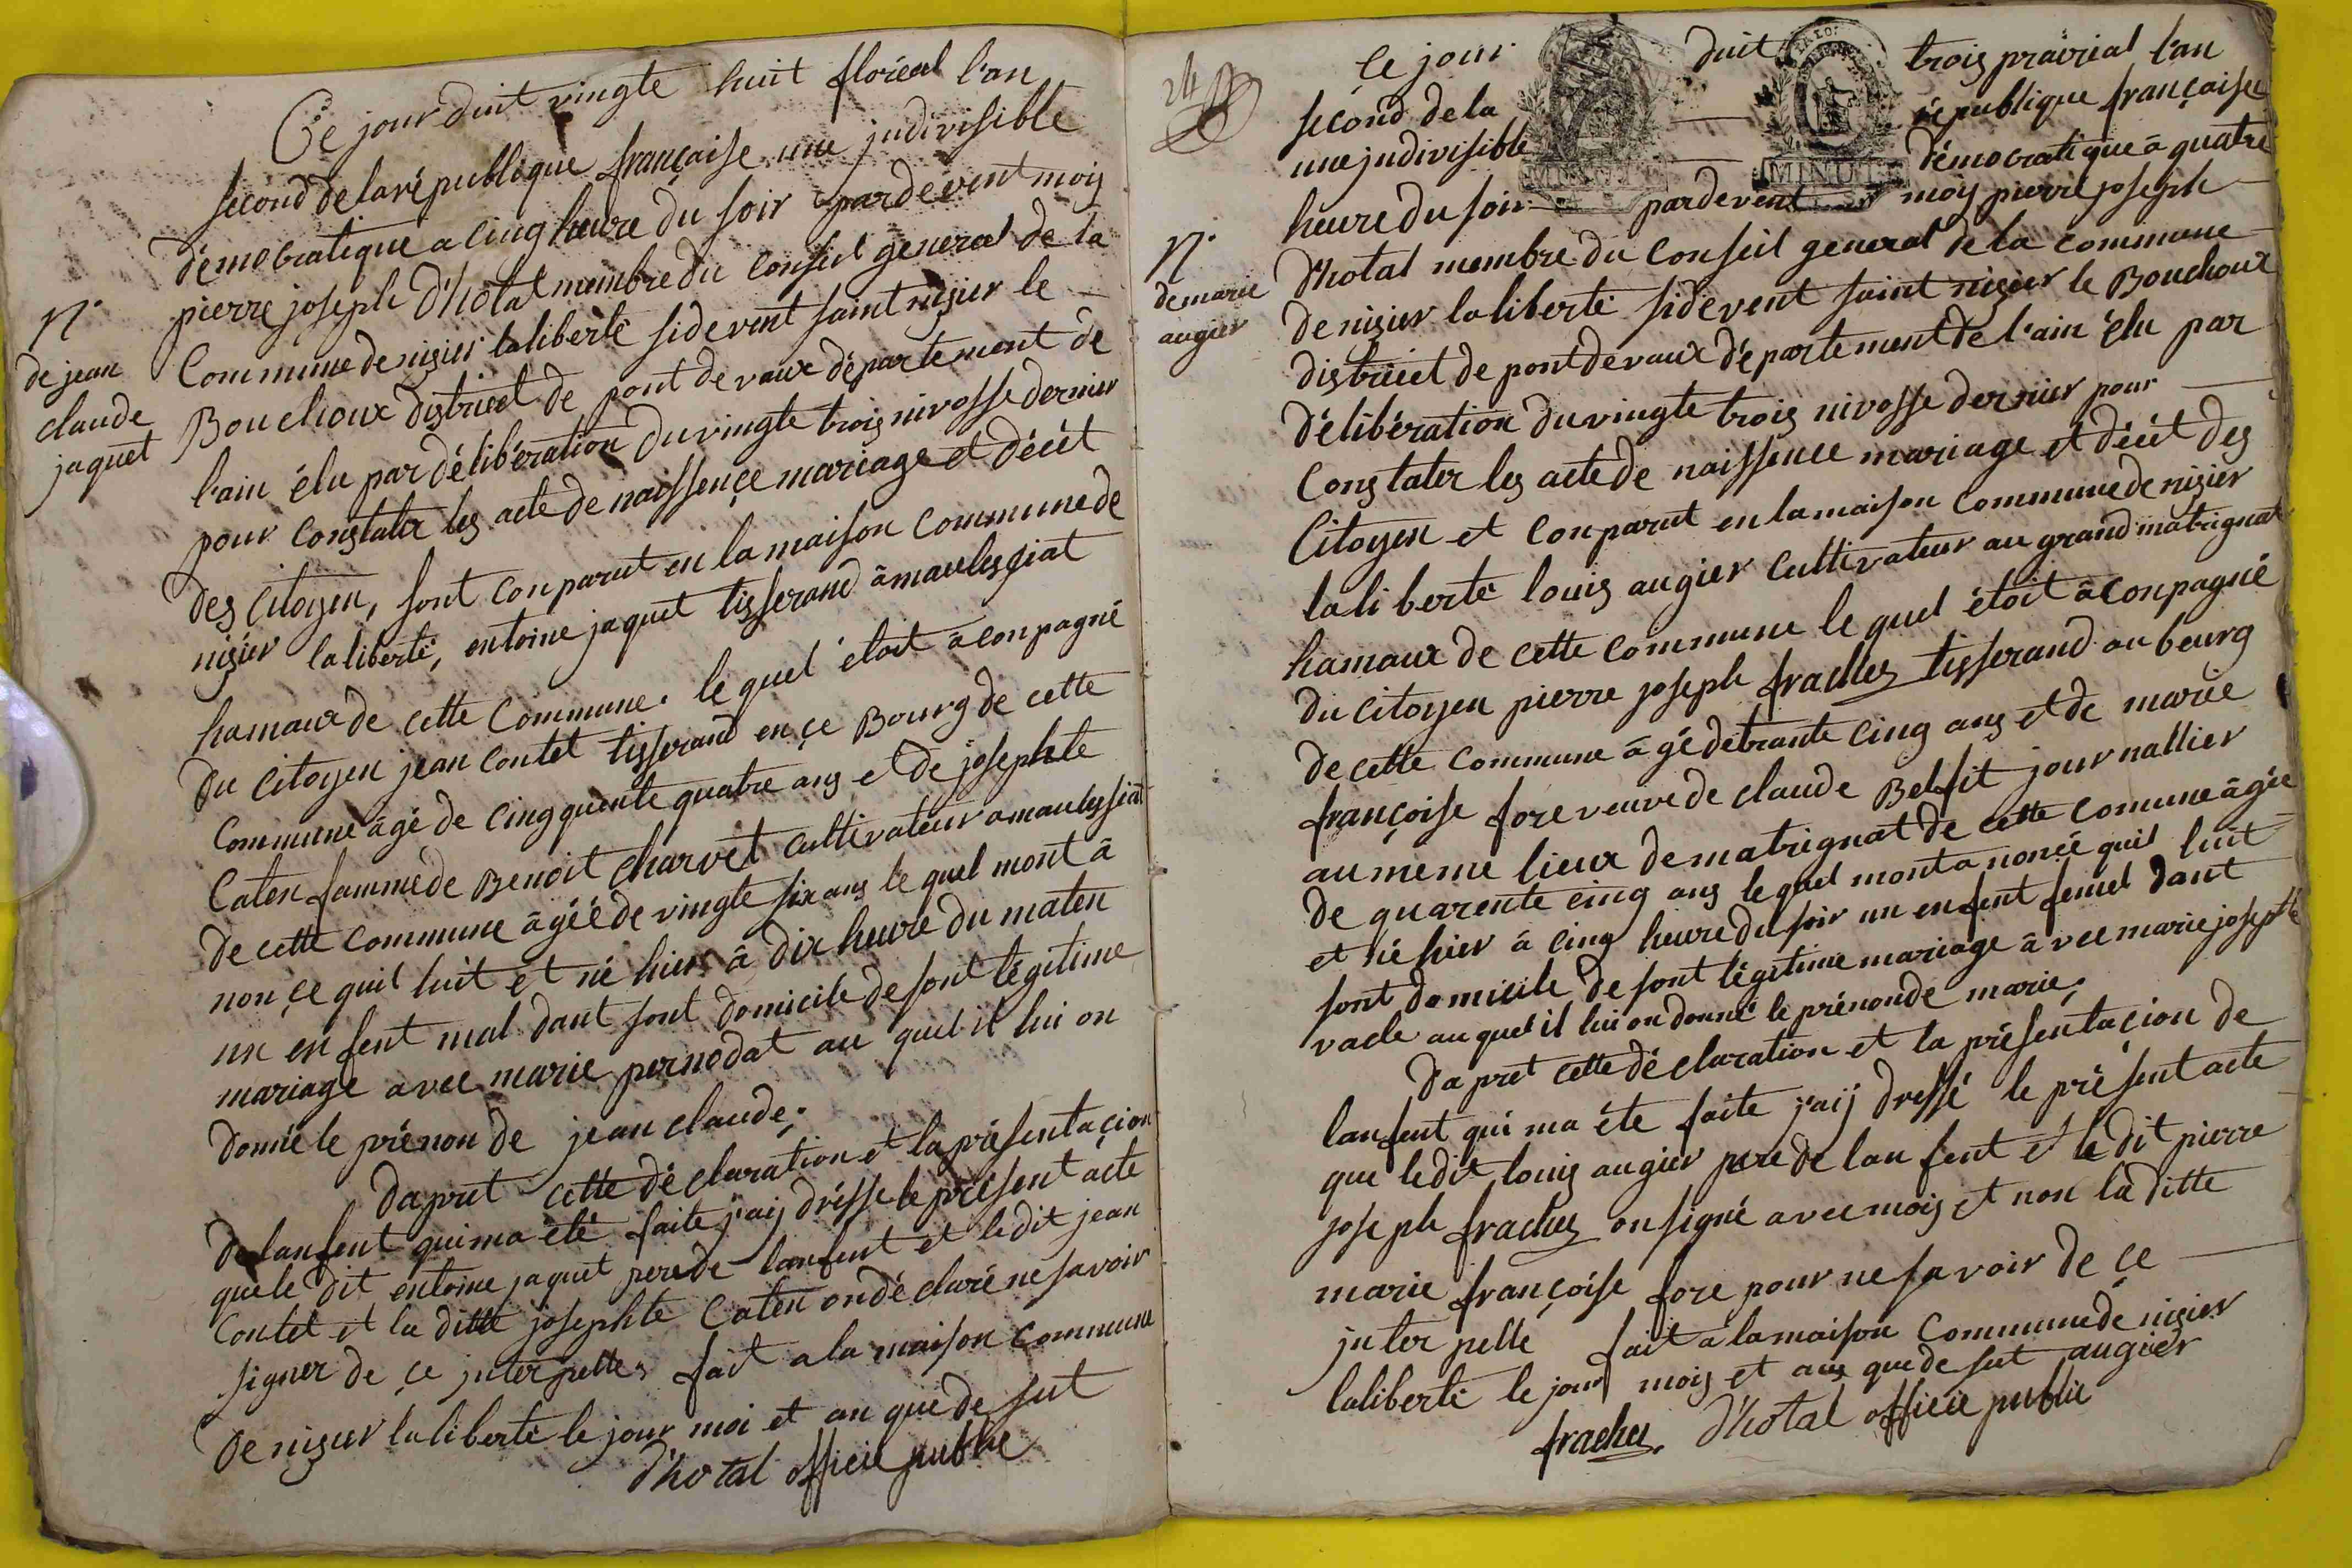 Ce jour duit vingte huit floréal l'an
second de la république française une jndivisible
démocratique a cinq heure du soir pardevent moij
pierre joseph d'hotal membre du conseil general de la
Commune de nizier laliberté sidevent saint nizier le
Bouchoux district de pont de vaux département de
l'ain élu par délibération du vingte trois nivosse dernier
pour constater les acte de naissençe mariage et décét
des Citoyen, sont conparut en la maison commune de
nizier laliberté, entoine jaquet tisserand â maulesçiat
hamaux de cette Commune. le quel étoit âconpagné
du citoyen jean contet tisserand en çe Bourg de cette
Commune âgé de cinqquente quatre ans et de josephte
Caten famme de Benoit charvet cultivateur a maulessiat
de cette commune âgéé de vingte six ans le quel mont â
non çe quil luit et né hier â dix heure du maten
un enfent mal dant sont domicile de sont légitime
mariage avec marie pernodat au quel il lui on
donné le prénon de jean claude;
Daprét cette déclaration et la présentaçion
de lanfent qui ma été faite j'aij dréssé le présent acte
que le dit entoine jaquet pere de lanfent et le dit jean
Contet et la ditte josephte Caten on déclaré ne savoir
signer de çe jnterpelle, fait a la maison commune
de nizier laliberté le jour moi et an que de sut
d'hotal officie public
N.
de jean
claude
jaquet
24
Çe jour duit trois prairial l'an
second de la république française
une jndivisible démocratique â quatre
heure du soir pardevent moij pierre joseph
MINUTE MINUTE
d'hotal membre du conseil general de la commune
de nizier laliberté sidevent saint nizier le Bouchoux
district de pontdevaux département de l'ain élu par
délibération du vingte trois nivosse dernier pour
Constater les acte de naissence mariage et décét des
Citoyen et conparut en la maison commune de nizier
laliberté louis augier cultivateur au grand matrignat
hamaux de cette commune le quel étoit âconpagné
du citoyen pierre joseph frachez tisserand au bourg
de cette commune âgé de trante cinq ans et de marie
françoise fore veuve de claude Belfit journallier
au méme lieux de matrignat de cette comune âgée
de quarente cinq ans le quel mont anoncé quil luit
et né hier â cinq heure du soir un enfent femel dant
sont domicile de sont légitime mariage âvec marie josephte
vacle au quel il lui on donné le prénon de marie;
Daprét cette déclaration et la présentaçion de
lanfent qui ma éte faite j'aij dressé le présent acte
que ledit louis augier pere de lanfent et le dit pierre
joseph frachez on signé avec moij et non la ditte
marie françoise fore pour ne savoir de çe
jnterpelle fait â la maison Commune de nizier
laliberté le jour mois et ans que de sut augier
frachez. d'hotal officie public
N.
de marie
augier